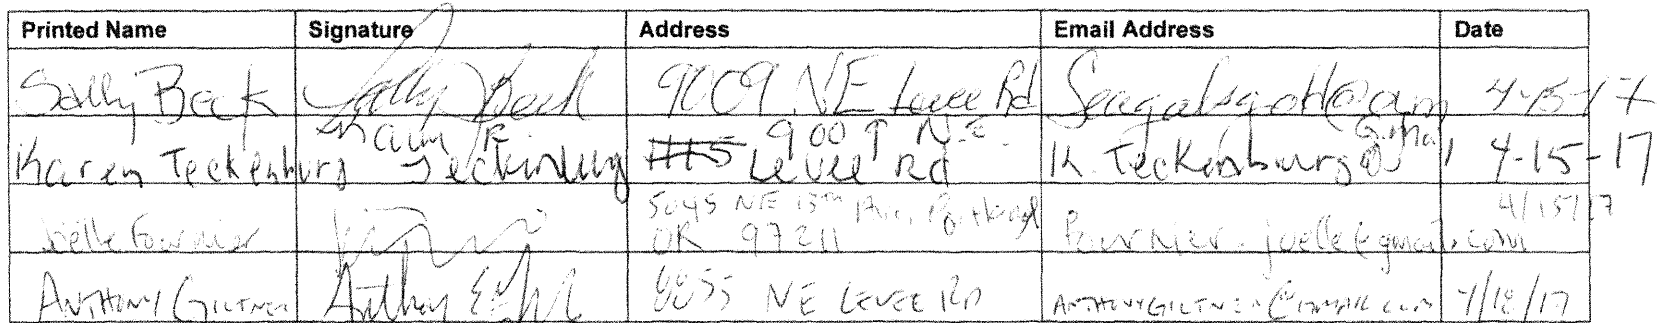 Printed Name Signature Address Email Address Date
Sally Beck Sally Beck 9009 NE Levee Rd 4-15-17
Karen Teckenburg Karen Teckenburg 9009 N.E. Levee Rd K.Teckenburg@gmail 4-15-17
Joelle Fournier 5045 NE 13th Ave, Portland OR 97211 fournier.joelle@gmail.com 4/15/17
Anthony Giltner Anthony 8855 NE Levee Rd anthonygiltner@gmail.com 4/18/17